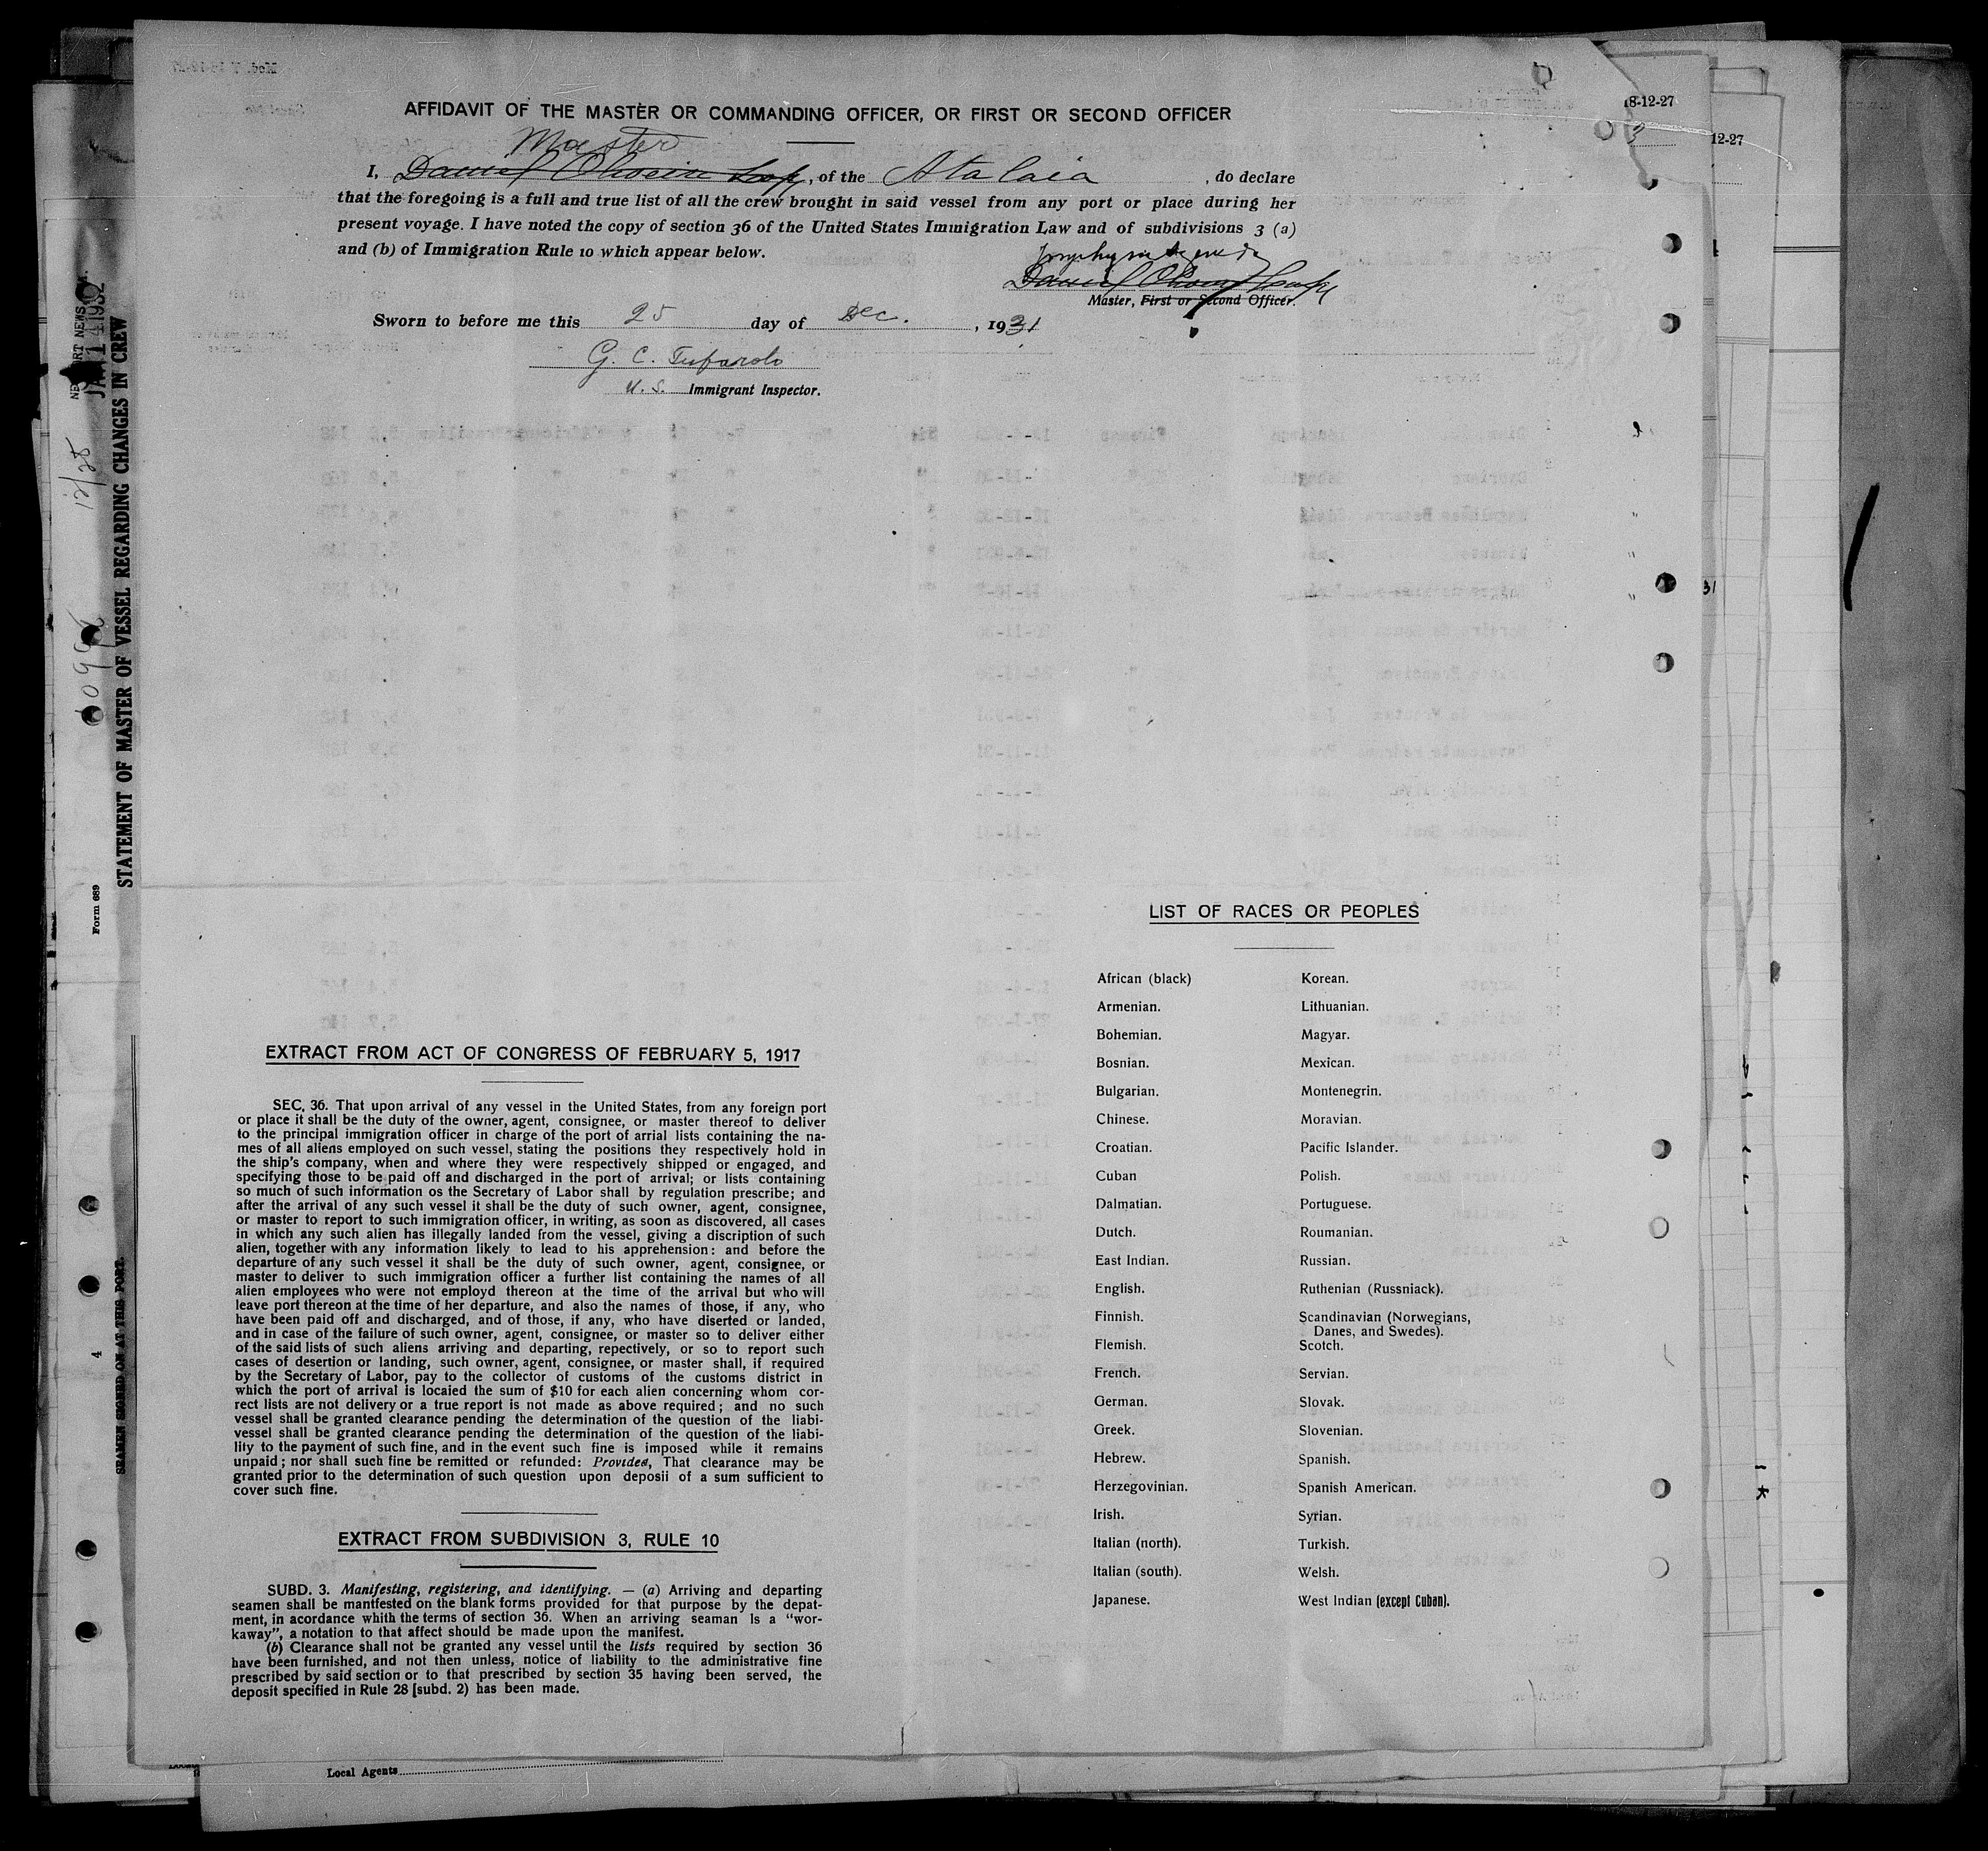 AFFIDAVIT OF THE MASTER OR COMMANDING OFFICER, OR FIRST OR SECOND OFFICER
Master
I, Daniel , of the Atalaia , do declare
that the foregoing is a full and true list of all the crew brought in said vessel from any port or place during her
present voyage. I have noted the copy of section 36 of the United States Immigration Law and of subdivisions 3 (a)
and (b) of Immigration Rule 10 which appear below.
Daniel
Master, First or Second Officer.
Sworn to before me this 25 day of Dec. , 1931
G. C. Tufarolo
U. S. Immigrant Inspector.
LIST OF RACES OR PEOPLES
African (black) Korean.
Armenian. Lithuanian.
Bohemian. Magyar.
Bosnian. Mexican.
Bulgarian. Montenegrin.
Chinese. Moravian.
Croatian. Pacific Islander.
Cuban Polish.
Dalmatian. Portuguese.
Dutch. Roumanian.
East Indian. Russian.
English. Ruthenian (Russniack).
Finnish. Scandinavian (Norwegians,
Danes, and Swedes).
Flemish. Scotch.
French. Servian.
German. Slovak.
Greek. Slovenian.
Hebrew. Spanish.
Herzegovinian. Spanish American.
Irish. Syrian.
Italian (north). Turkish.
Italian (south). Welsh.
Japanese. West Indian (except Cuban).
EXTRACT FROM ACT OF CONGRESS OF FEBRUARY 5, 1917
SEC, 36. That upon arrival of any vessel in the United States, from any foreign port
or place it shall be the duty of the owner, agent, consignee, or master thereof to deliver
to the principal immigration officer in charge of the port of arrial lists containing the na-
mes of all aliens employed on such vessel, stating the positions they respectively hold in
the ship's company, when and where they were respectively shipped or engaged, and
specifying those to be paid off and discharged in the port of arrival; or lists containing
so much of such information os the Secretary of Labor shall by regulation prescribe; and
after the arrival of any such vessel it shall be the duty of such owner, agent, consignee,
or master to report to such immigration officer, in writing, as soon as discovered, all cases
in which any such alien has illegally landed from the vessel, giving a discription of such
alien, together with any information likely to lead to his apprehension: and before the
departure of any such vessel it shall be the duty of such owner, agent, consignee, or
master to deliver to such immigration officer a further list containing the names of all
alien employees who were not employd thereon at the time of the arrival but who will
leave port thereon at the time of her departure, and also the names of those, if any, who
have been paid off and discharged, and of those, if any, who have diserted or landed,
and in case of the failure of such owner, agent, consignee, or master so to deliver either
of the said lists of such aliens arriving and departing, repectively, or so to report such
cases of desertion or landing, such owner, agent, consignee, or master shall, if required
by the Secretary of Labor, pay to the collector of customs of the customs district in
which the port of arrival is locaied the sum of $10 for each alien concerning whom cor-
rect lists are not delivery or a true report is not made as above required; and no such
vessel shall be granted clearance pending the determination of the question of the liabi-
vessel shall be granted clearance pending the determination of the question of the liabi-
lity to the payment of such fine, and in the event such fine is imposed while it remains
unpaid; nor shall such fine be remitted or refunded: Provided, That clearance may be
granted prior to the determination of such question upon deposii of a sum sufficient to
cover such fine.
EXTRACT FROM SUBDIVISION 3, RULE 10
SUBD. 3. Manifesting, registering, and identifying. — (a) Arriving and departing
seamen shall be mantfested on the blank forms provided for that purpose by the depat-
ment, in acordance whith the terms of section 36. When an arriving seaman Is a "wor-
kaway", a notation to that affect should be made upon the manifest.
(b) Clearance shall not be granted any vessel until the lists required by section 36
have been furnished, and not then unless, notice of liability to the administrative fine
prescribed by said section or to that prescribed by section 35 having been served, the
deposit specified in Rule 28 [subd. 2) has been made.
Local Agents
STATEMENT OF MASTER OF VESSEL REGARDING CHANGES IN CREW
Form 689
SEAMEN SIGNED ON AT THIS PORT.
4
12/25
18-12-27
12-27